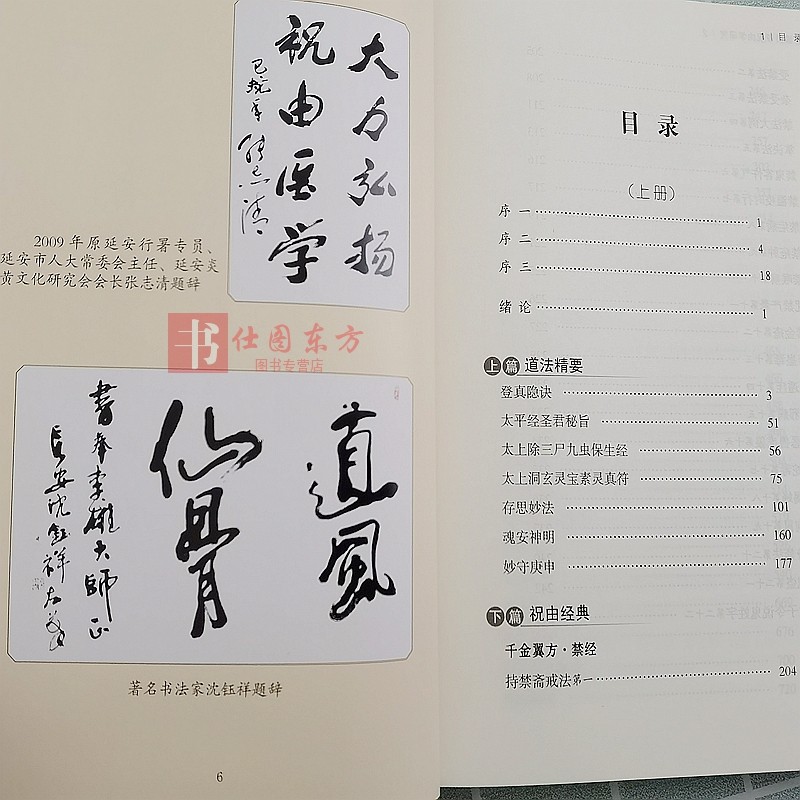 大力弘扬
祝由医学
2009年原延安行署专员、
延安市人大常委会主任、延安炎
黄文化研究会会长张志清题辞
书 仕图东方
图书专营店
道风
仙骨
长安沈钰祥
著名书法家沈钰祥题辞
6
1 | 目录
目 录
(上册)
序一 1
序二 4
序三 18
绪论 1
上篇 道法精要
登真隐诀 3
太平经圣君秘旨 51
太上除三尸九虫保生经 56
太上洞玄灵宝素灵真符 75
存思妙法 101
魂安神明 160
妙守庚申 177
下篇 祝由经典
千金翼方·禁经
持禁斋戒法第一 204